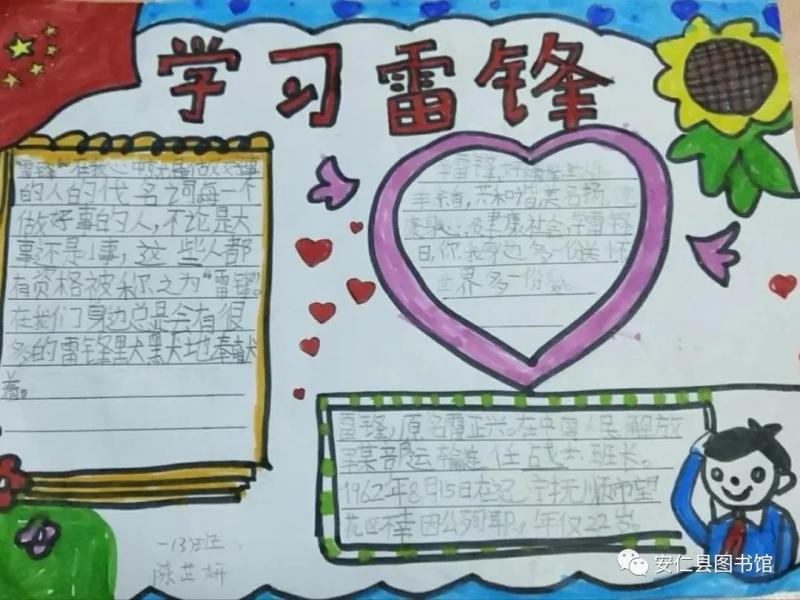 学习雷锋
"雷锋"在我心中
的人的代名词每一个
做好事的人,不论是大
事还是小事,这些人都
有资格被称之为"雷锋"。
在我们身边总是会有很
多的雷锋默默地奉献
着。
学雷锋,
共和谐美名扬,
康身心,促健康社会,学雷锋
日,你我身边多一份关怀
世界多一份
雷锋,原名雷正兴。在中国人民解放
军某部运输连任战士、班长。
1962年8月15日在辽宁抚顺市望
花区不幸因公殉职,年仅22岁。
一(3)班
陈芷妍
安仁县图书馆